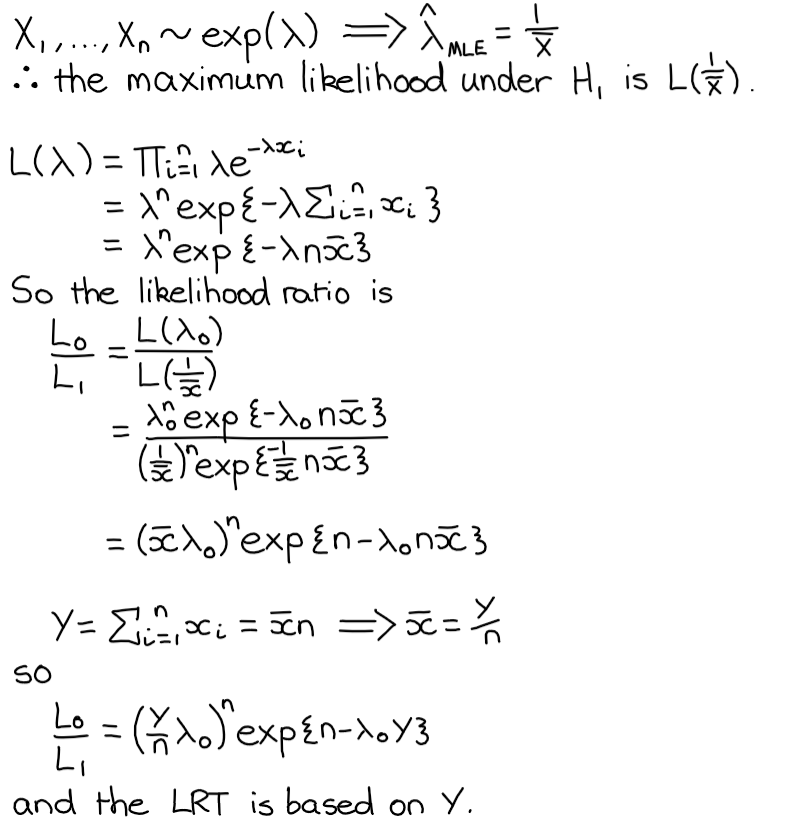 X₁,...,Xₙ ~ exp(λ) ⟹ λ̂_MLE = 1/X̄
∴ the maximum likelihood under H₁ is L(1/x̄).
L(λ) = Πᵢ₌₁ⁿ λe^(-λxᵢ)
= λⁿ exp{-λΣᵢ₌₁ⁿ xᵢ}
= λⁿ exp{-λnx̄}
So the likelihood ratio is
L₀/L₁ = L(λ₀)/L(1/x̄)
= λ₀ⁿ exp{-λ₀nx̄} / (1/x̄)ⁿ exp{-1/x̄ nx̄}
= (x̄λ₀)ⁿ exp{n-λ₀nx̄}
Y = Σᵢ₌₁ⁿ xᵢ = x̄n ⟹ x̄ = Y/n
so
L₀/L₁ = (Y/n λ₀)ⁿ exp{n-λ₀Y}
and the LRT is based on Y.